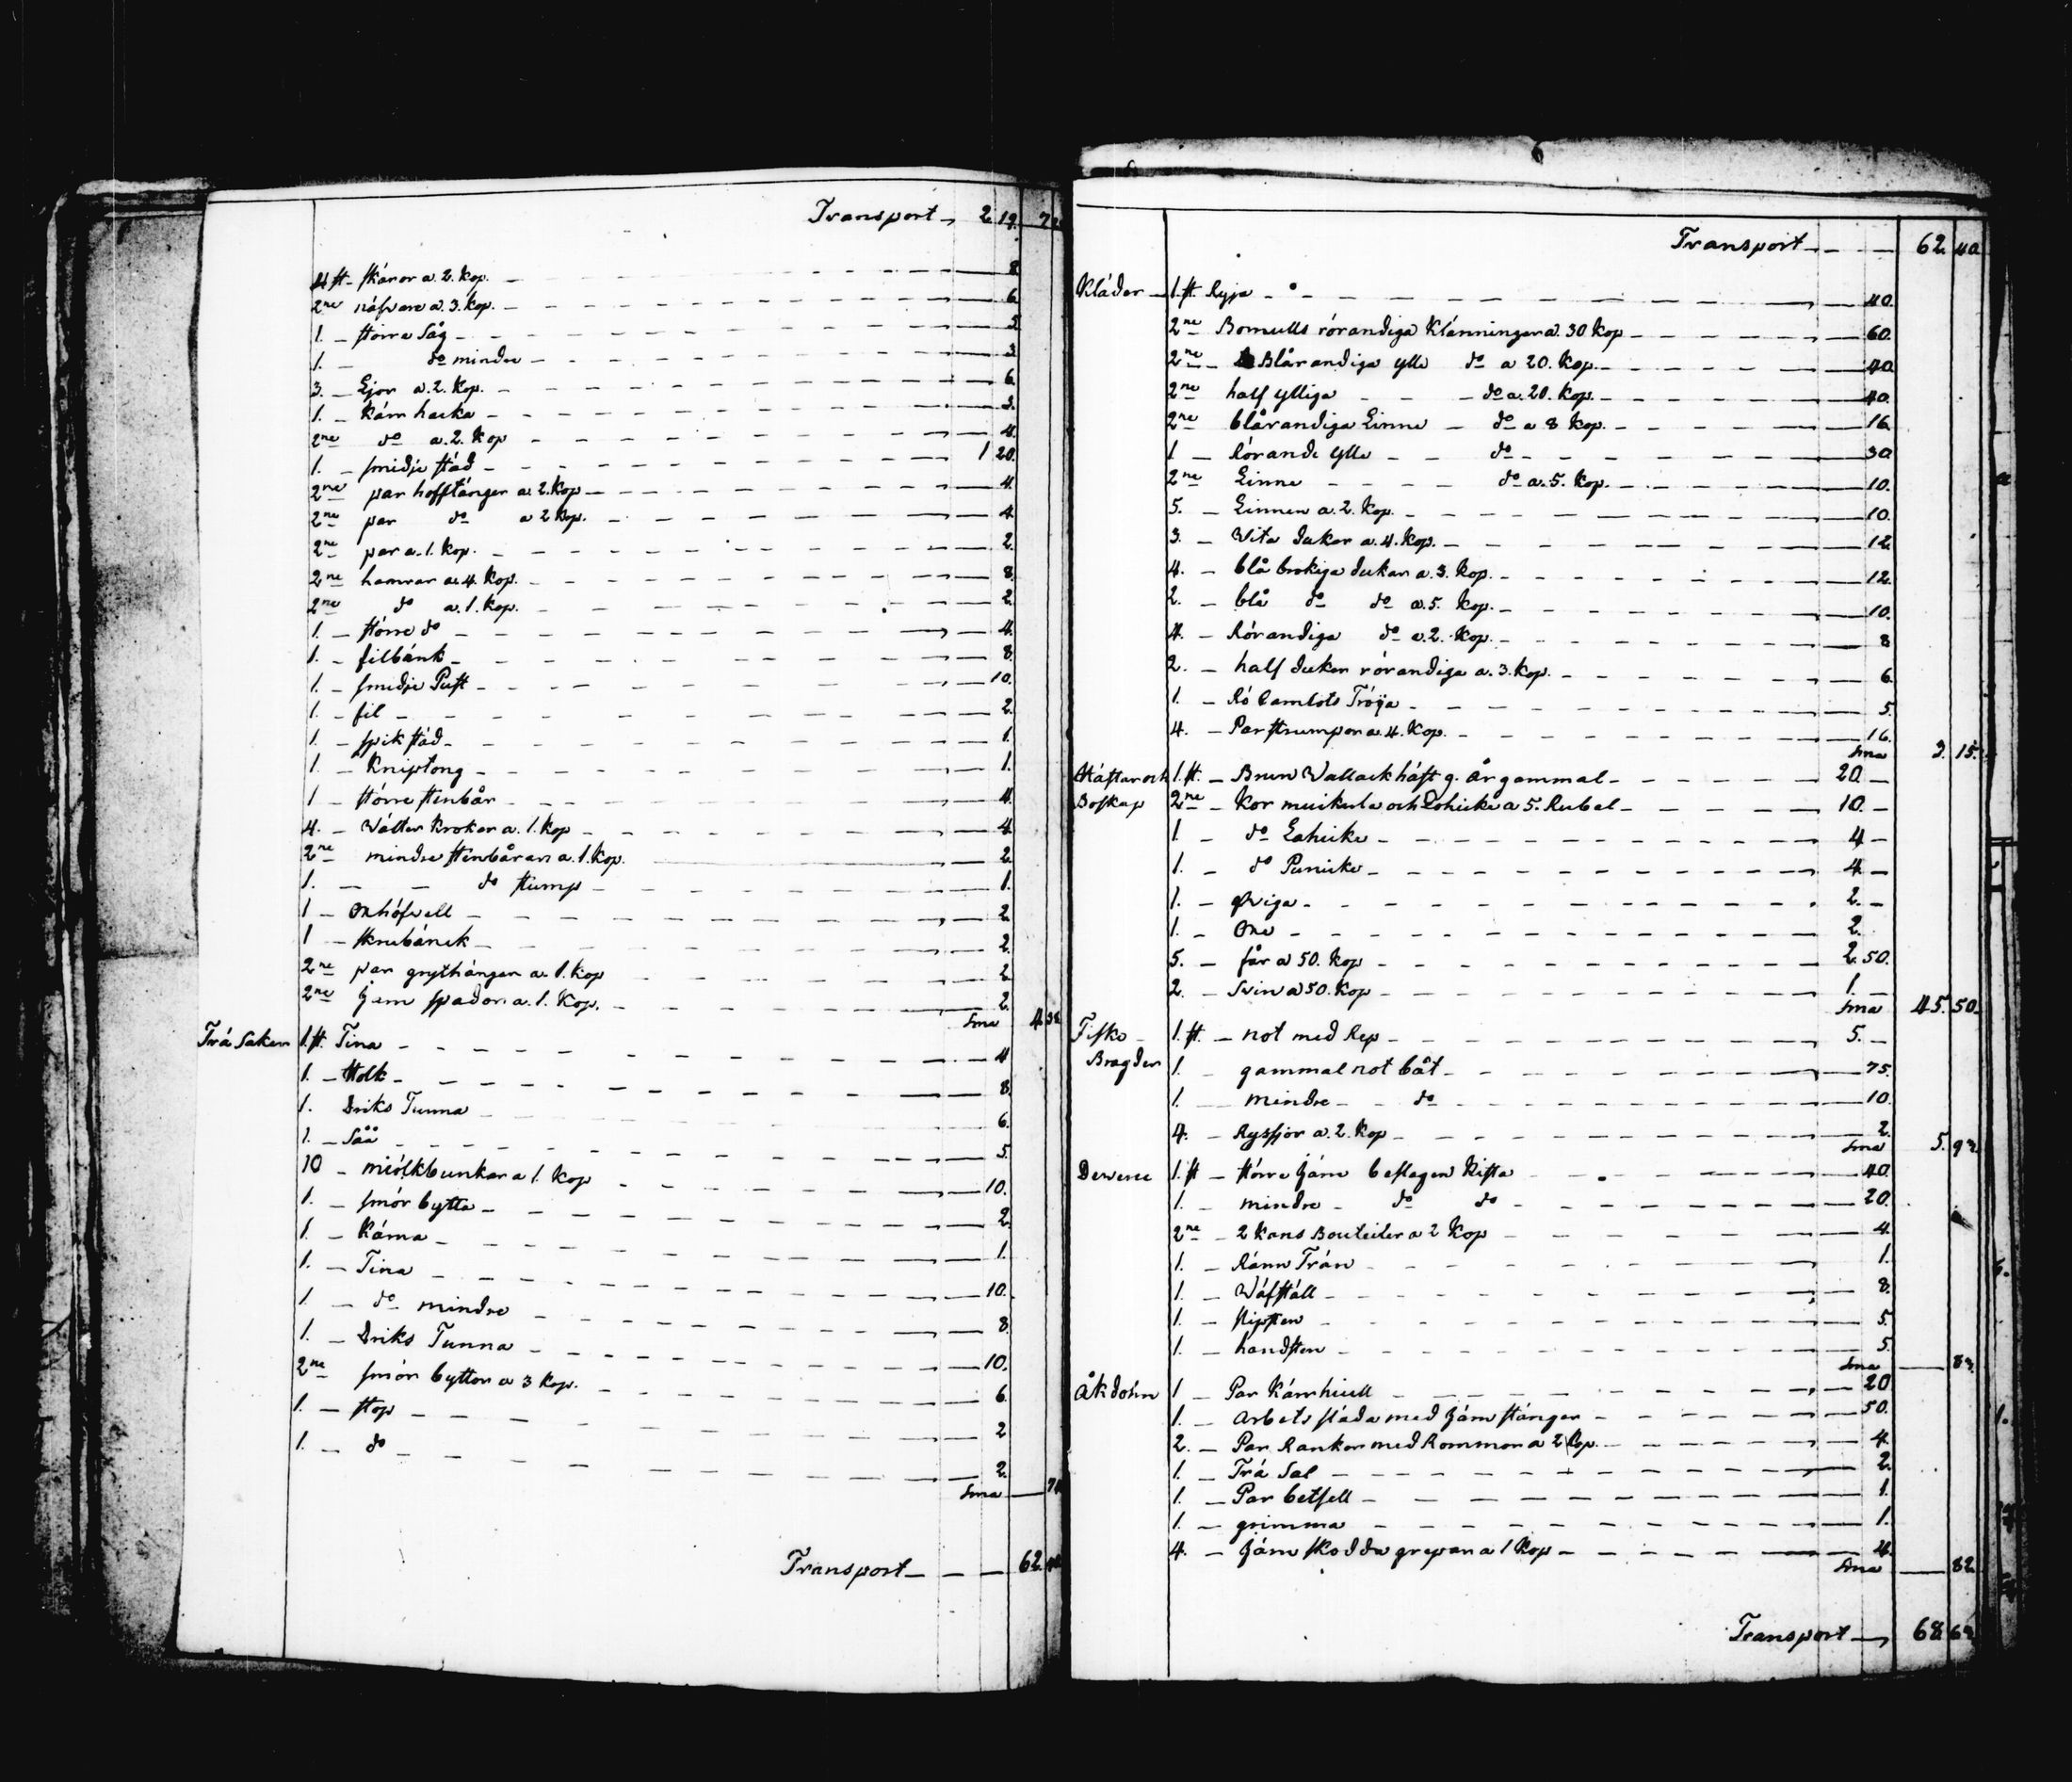 Transport 2 19. 7
4 st skäror a. 2. kop. 8
2ne näfvare a. 3. kop. 6
1. större Såg 5.
1. do mindre 3.
3. Ljor a. 2. kop. 6.
1. Järn hacka 3.
2ne do a. 2. kop 4.
1. smidje städ 1 20.
2ne par hofftänger a. 2. kop 4.
2ne par do a 2 kop. 4.
2ne par a. 1. kop. 2.
2ne hamrar a. 4. kop. 8.
2ne do a. 1. kop. 2.
1. större do 4.
1. filbänk 8.
1. smidje Pust 10.
1. fil 2.
1. spik städ 1.
1. Kniptong 1.
1 större stenbår 4.
4. Wätter Krokar a. 1. kop 4.
2ne mindre stenbårar a. 1. kop. 2.
1. do stump 1.
1 Onhöfvell 2.
1 skrubánck 2.
2ne par grythänger a. 1. kop 2.
2ne Jern spador a. 1. kop. 2.
Sma 4
Trä Saker 1. st. Tina 4
1. Stolk 8.
1. Driks Tunna 6.
1. Såå 5.
10 miölkbunkar a 1. kop 10.
1. smör bytta 2.
1. Kärna 1.
1. Tina 10.
1. do mindre 8.
1. Driks Tunna 10.
2ne smör byttor a 3 kop. 6.
1. stop 2
1. do 2.
Sma
Transport 62.
Transport 62 40
Kläder 1. st. Ryja 40.
2ne Bomulls rörandiga Klänningar a. 30 kop 60.
2ne Blårandiga ylle do a 20. kop. 40
2ne half ylliga do a. 20. kop. 40.
2ne blårandiga Linne do a 8 kop. 16.
1 Rörande ylle do 30
2ne Linne do a. 5. kop. 10.
5. Linnen a. 2. kop. 10.
3. Wita dukar a. 4. kop. 12
4. blå brokiga dukar a. 3. kop. 12.
2. blå do do a. 5. kop. 10.
4. Rörandiga do a. 2. kop. 8
2. half dukar rörandiga a. 3. kop. 6.
1. Rö Camlots Tröija 5.
4. Par strumpor a. 4. kop. 16.
Sma 3. 15.
Hästar och 1. st. Brun Wallack häst 9. År gammal 20.
Boskap 2ne Kor muikula och Lohicke a 5. Rubel 10.
1. do Lahicke 4
1. do Punicke 4
1. qviga 2.
1. Oxe 2.
5. får a 50. kop 2. 50.
2. Svin a 50. kop 1.
Sma 45. 50.
Fiske 1. st. not med Rep 5.
Bragder 1. gammal not båt 75.
1. mindre do 10.
4. Rysjor a. 2. kop 2.
Sma 5. 9
Diverse 1. st större Järn beslagen Kista 40.
1. mindre do do 20.
2ne 2 kans Bouteiler a 2 kop 4.
1. Ränn Trän 1.
1. Wäfställ 8.
1. slipsten 5.
1. handsten 5.
Sma 8
Åkdohn 1 Par Kärrhiull 20
1. Arbets släda med Järn stänger 50.
2. Par Rankor med Rommor a 2 kop. 4.
1. Trä Sal 2.
1. Par betsell 1.
1. grimma 1.
4. Järn skodda grepar a 1 kop 4.
Sma 82.
Transport 68. 6